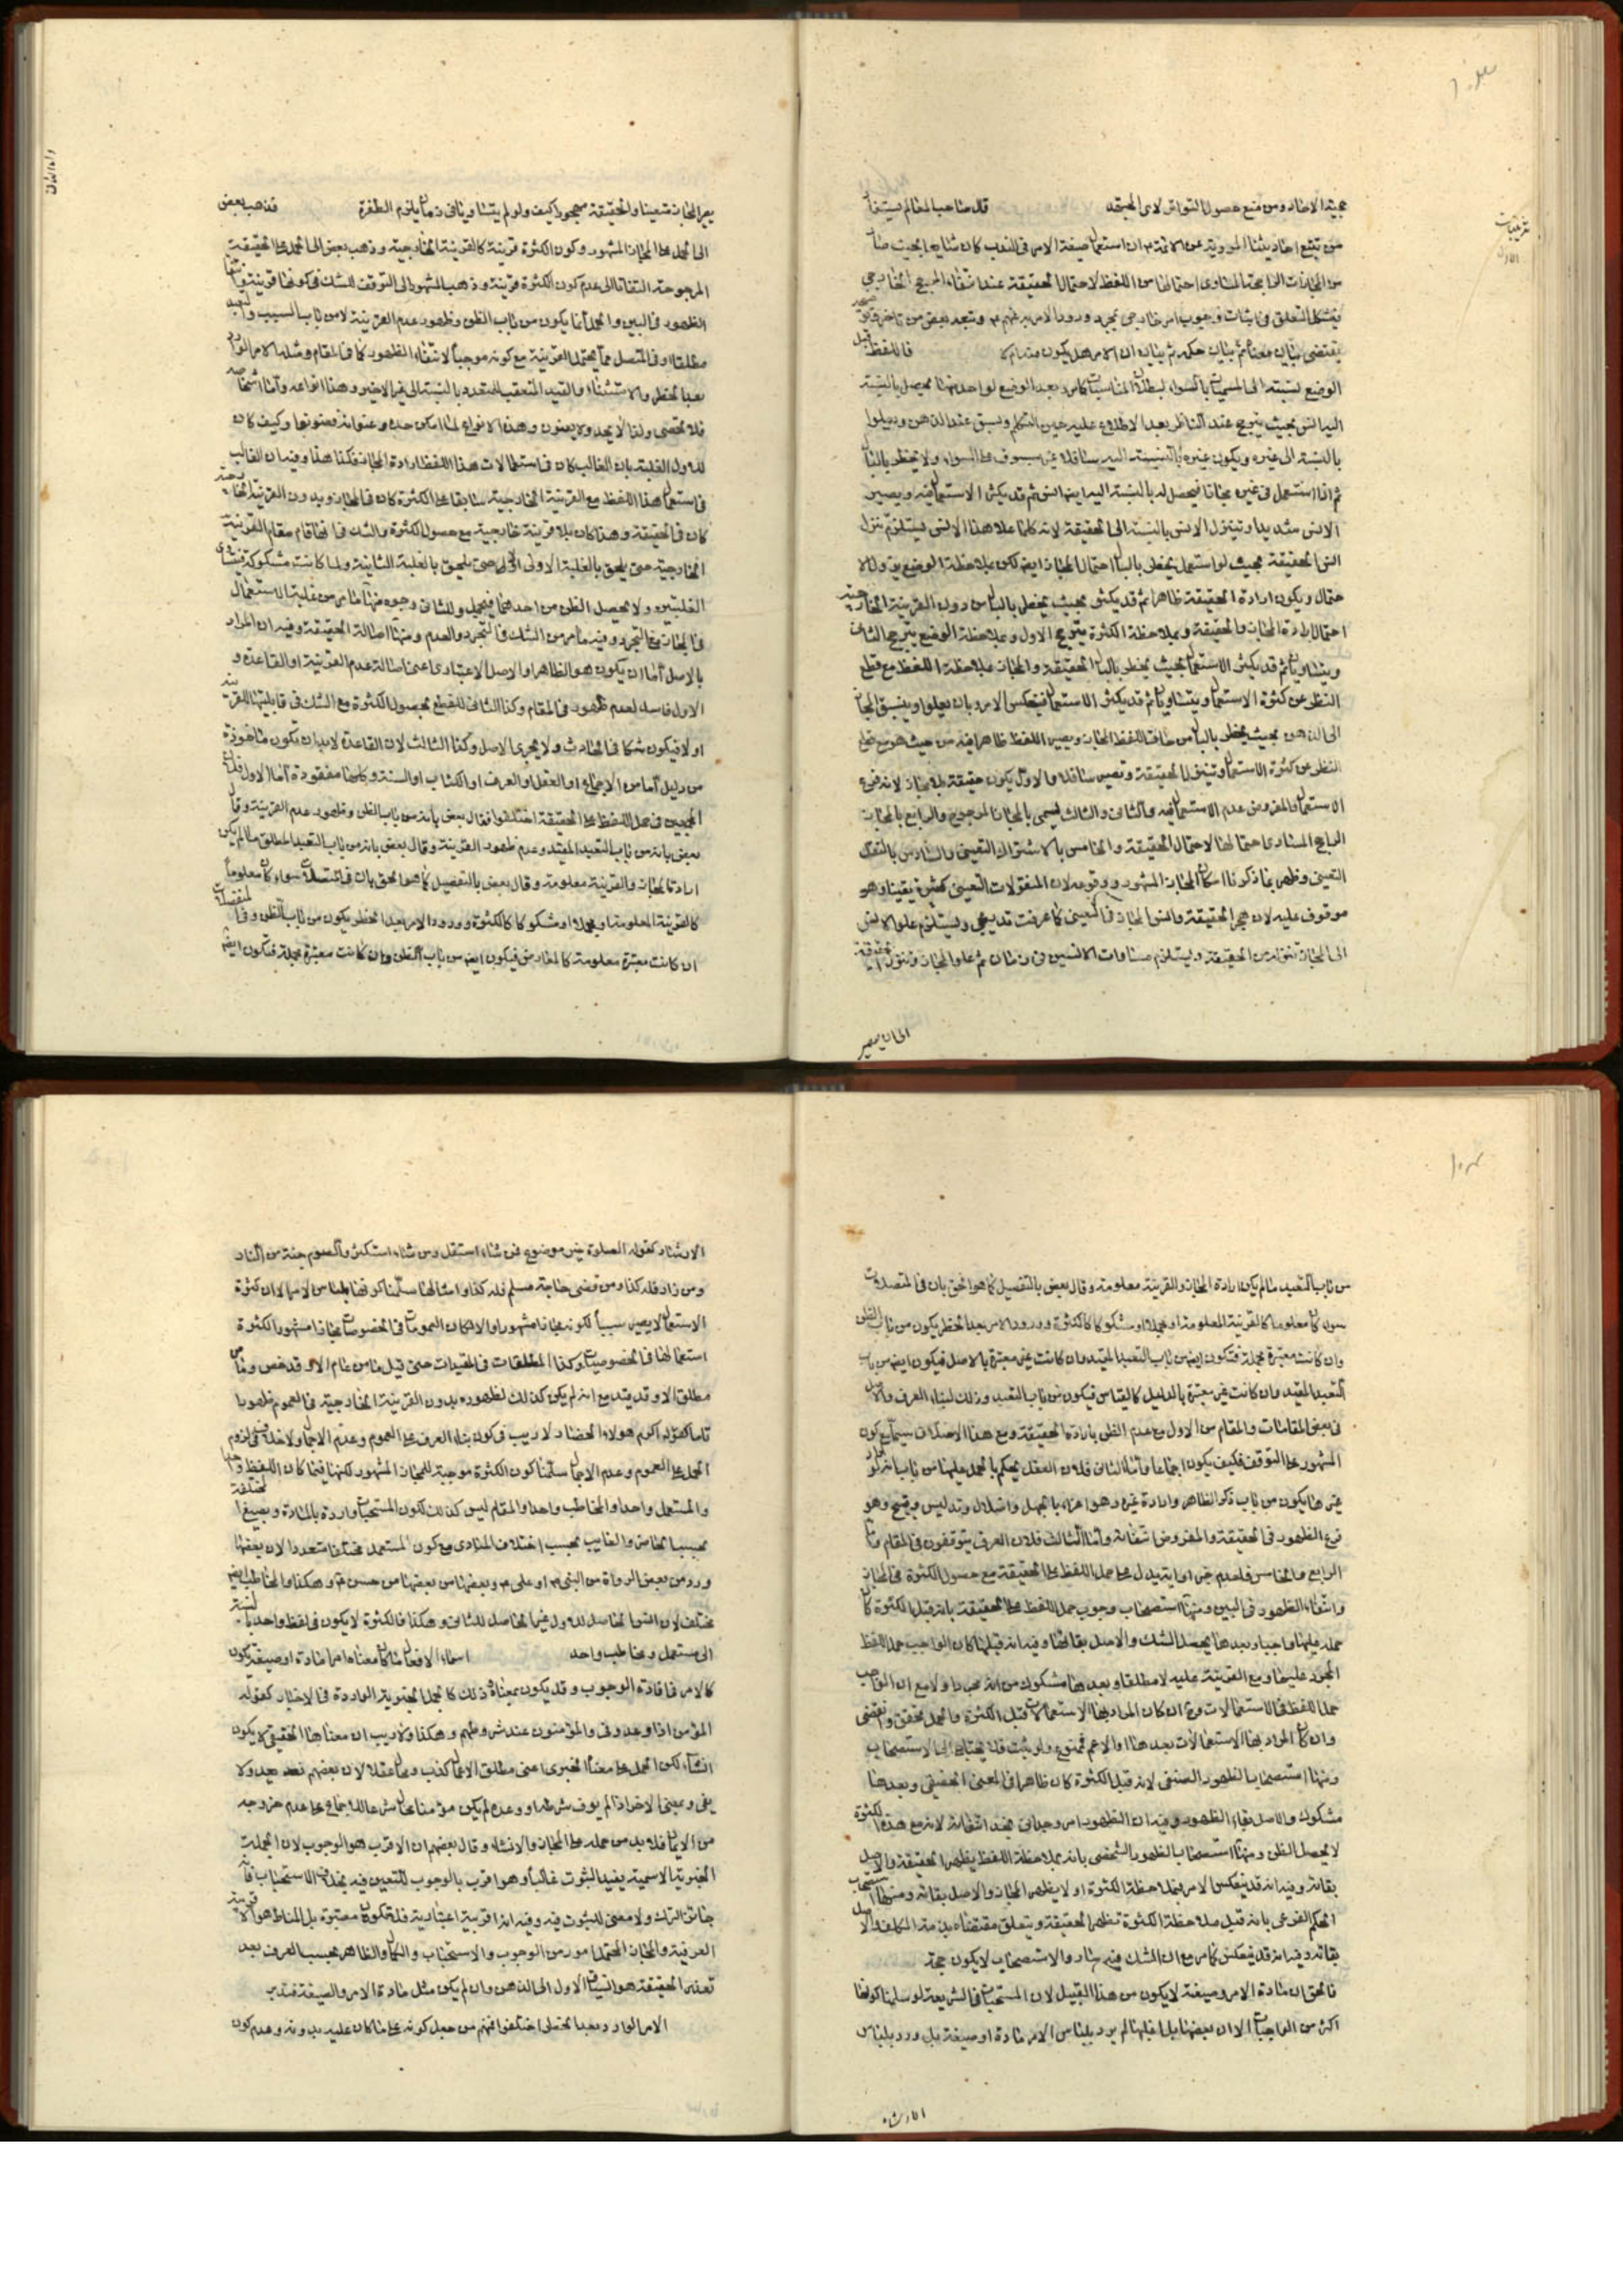 بحيث الاخاد ومن منع حصول التواتر لاى المجتهد قال صاحب المعالم يستفاد
من تتبع احاديثنا المروية عن الائمة ان استعمال صيغة الامر فى الندب كان شايعا بحيث صار
من المجازات الراجحة المساوى احتمالها من اللفظ لاحتمال الحقيقة عند انتفاء المرجح الخارجى
فيشكل التعلق فى اثبات وجوب امر خارجى بمجرد ورود الامر به منهم
يقتضى بيان معناه ثم بيان حكمه ثم بيان ان الامر هل يكون فاللفظ قبل
الوضع نسبته الى المسميات بالسواء لبطلان المناسبات كما مر وبعد الوضع لواحد منها يحصل بالنسبة
اليه انس بحيث يترجح عند الناظر بعد الاطلاع عليه حين التكلم ويسبق عند الذهن
بالنسبة الى غيره ويكون غيره بالنسبة اليه ساقطا غير مسبوق على السواء ولا يخطر بالبال
ثم اذا استعمل فى غيره مجازا فيحصل له بالنسبة اليه ايضا انس ثم قد يكثر الاستعمال فيه ويصير
الانس شديدا وينزل الانس بالنسبة الى الحقيقة لانه كلما علا هذا الانس فيستلزم تنزل
انس الحقيقة بحيث لو استعمل يخطر بالبال احتمال المجاز ايضا لكن بملاحظة الوضع يزول الا
حتمال ويكون ارادة الحقيقة ظاهرا ثم قد يكثر بحيث يخطر بالبال من دون القرينة الخارجية
احتمال ارادة المجاز والحقيقة وبملاحظة الكثرة يترجح الاول وبملاحظة الوضع يترجح الثانى
ويتساويان ثم قد يكثر الاستعمال بحيث يخطر بالبال الحقيقة والمجاز بملاحظة اللفظ مع قطع
النظر عن كثرة الاستعمال ويتساويان ثم قد يكثر الاستعمال فينعكس الامر بان يعلو ويسبق المجاز
الى الذهن بحيث يخطر بالبال من حاق اللفظ المجاز ويصير اللفظ ظاهرا فيه من حيث هو مع قطع
النظر عن كثرة الاستعمال وينزل الحقيقة وتصير ساقطا والاول يكون حقيقة بلا مجاز لانه فرع
الاستعمال والمفروض عدم الاستعمال فيه والثانى والثالث يسمى بالمجاز المرجوح والرابع بالمجاز
الراجح المساوى احتمالها لاحتمال الحقيقة والخامس بالاشتراك التعينى والسادس بالنقل
التعينى وظهر بما ذكرنا امكان المجاز المشهور ووقوعه لان المنقولات التعينى كثيرة يقينا وهو
موقوف عليه لان هجر الحقيقة وانس المجاز فى التعينى كما عرفت تدريجى ويستلزم علو الانس
الى المجاز تنزله من الحقيقة ويستلزم مساوات الانسين فى زمان ثم علو المجاز وتنزل الحقيقة
يصير المجاز متعينا والحقيقة مهجورا كيف ولو لم يتساويا فى زمان يلزم الطفرة فذهب بعض
الى الحمل على المجاز المشهور وكون الكثرة قرينة كالقرينة الخارجية وذهب بعض الى الحمل على الحقيقة
المرجوحة التفاتا الى عدم كون الكثرة قرينة وذهب المشهور الى التوقف للشك فى كونها قرينة
الظهور فى البين والحمل انما يكون من باب الظن وظهور عدم القرينة لا من باب السبب والتعبد
مطلقا او فى المتصل مما يحتمل القرينة مع كونه موجبا لانتفاء الظهور كما فى المقام ومثله الامر الوارد
بعد الحظر والاستثناء والقيد المتعقب للمتعدد بالنسبة الى غير الاخير وهذا انواعه واما اشخاصه
فلا تحصى ولذا لا يحد ولا يعنون وهذه الانواع لما امكن حده وعنوانه فعنونوها وكيف كان
للاول الغلبة بان الغالب كان فى استعمالات هذا اللفظ ارادة المجاز فكذا هذا وفيه ان الغالب
فى استعمال هذا اللفظ مع القرينة الخارجية سابقا على الكثرة كان فى المجاز وبدون القرينة الخارجية
كان فى الحقيقة وهذا كان بلا قرينة خارجية مع حصول الكثرة والشك فى انها قام مقام القرينة
الخارجية حتى يلحق بالغلبة الاولى ام لا حتى يلحق بالغلبة الثانية ولما كانت مشكوكة
الغلبتين ولا يحصل الظن من احدهما فيجمل وللثانى وجوه منها ما مر من غلبة الاستعمال
فى المجاز مع التجرد وفيه ما مر من الشك فى التجرد والعدم ومنها اصالة الحقيقة وفيه ان المراد
بالاصل اما ان يكون هو الظاهر او الاصل الاعتبادى اعنى اصالة عدم القرينة او القاعدة و
الاول فاسد لعدم ظهور فى المقام وكذا الثانى للقطع بحصول الكثرة مع الشك فى قابليتها للقرينة
او لا فيكون شكا فى الحادث ولا يجرى الاصل وكذا الثالث لان القاعدة لابد ان تكون ماخوذة
من دليل اما من الاجماع او العقل او العرف او الكتاب او السنة وكلها مفقودة اما الاول فلان
المجمعين فى حمل اللفظ على الحقيقة اختلفوا فقال بعض بانه من باب الظن وظهور عدم القرينة وقال
بعض بانه من باب التعبد المقيد وعدم ظهور القرينة وقال بعض بانه من باب التعبد المطلق ما لم يكن
ارادة المجاز والقرينة معلومة وقال بعض بالتفصيل كما هو الحق بان فى المتصلات سواء كان معلوما
كالقرينة المعلومة او مجملا او مشكوكا كالكثرة وورود الامر بعد الحظر يكون من باب الظن وفى المنفصلات
ان كانت معتبرة معلومة كالمعارض فيكون ايضا من باب الظن وان كانت معتبرة مجملة فتكون ايضا
المجاز يصير
من باب التعبد ما لم يكن ارادة المجاز والقرينة معلومة وقال بعض بالتفصيل كما هو الحق بان فى المتصلات
سواء كان معلوما كالقرينة المعلومة او مجملا او مشكوكا كالكثرة وورود الامر بعد الحظر يكون من باب الظن
وان كانت معتبرة مجملة فتكون ايضا من باب التعبد المقيد وان كانت غير معتبرة بالاصل فيكون ايضا من باب
التعبد المقيد وان كانت غير معتبرة بالدليل كالقياس فيكون من باب التعبد وذلك لبناء العرف والاصل
فى بعض المقامات والمقام من الاول مع عدم الظن بارادة الحقيقة ومع هذا الاختلاف سيما مع كون
المشهور على التوقف فكيف يكون اجماعا واما الثانى فلان العقل يحكم بالحمل عليها من باب انه لو اراد
غيرها يكون من باب ذكر الظاهر وارادة غيره وهو اغراء بالجهل واضلال وتدليس وقبيح وهو
فرع الظهور فى الحقيقة والمفروض انتفائه واما الثالث فلان العرف يتوقفون فى المقام واما
الرابع والخامس فلعدم خبر او اية يدل على حمل اللفظ على الحقيقة مع حصول الكثرة فى المجاز
وانتفاء الظهور فى البين ومنها استصحاب وجوب حمل اللفظ على الحقيقة بانه قبل الكثرة كان
حمله عليها واجبا وبعدها يحصل الشك والاصل بقائها وفيه انه قبلها كان الواجب حمل اللفظ
المجرد عليها ومع القرينة عليه لا مطلقا وبعدها مشكوك من انه مجرد او لا مع ان الواجب
حمل اللفظ فى الاستعمالات وح ان كان المراد بها الاستعمالات قبل الكثرة والحمل تحقق وانقضى
وان كان المراد بها الاستعمالات بعد هذا او الاعم فممنوع ولو ثبت فلا يحتاج الى الاستصحاب
ومنها استصحاب الظهور الصنفى لانه قبل الكثرة كان ظاهرا فى المعنى الحقيقى وبعدها
مشكوك والاصل بقاء الظهور وفيه ان الظهور امر وجدانى نجد انتفائه لانه مع هذه الكثرة
لا يحصل الظن ومنها استصحاب الظهور الشخصى بانه بملاحظة اللفظ يظهر الحقيقة والاصل
بقائه وفيه انه قد ينعكس الامر بملاحظة الكثرة او لا يظهر المجاز والاصل بقائه ومنها استصحاب
الحكم الفرعى بانه قبل ملاحظة الكثرة تظهر الحقيقة ويتعلق مقتضاه بذمة المكلف والاصل
بقائه وفيه انه قد ينعكس كما مر مع ان الشك فيه سار والاستصحاب لا يكون حجة
فالحق ان مادة الامر وصيغته لا يكون من هذا القبيل لان المستحبات فى الشريعة لو سلمنا كونها
اكثر من الواجبات الا ان بعضها بل اغلبها لم يرد بلفظ الامر مادة او صيغة بل ورد بلفظ
الارشاد
الارشاد كقوله الصلوة خير موضوع فمن شاء استقل ومن شاء استكثر والصوم جنة من النار
ومن زار فله كذا ومن قضى حاجة مسلم فله كذا وامثالها سلمنا كونها بلفظ الامر الا ان كثرة
الاستعمال لا يصير سببا لكونه مجازا مشهورا والا لكان العمومات فى الخصوصات مجازا مشهورا لكثرة
استعمالها فى الخصوصيات وكذا المطلقات فى المقيدات حتى قيل ما من عام الا وقد خص وما من
مطلق الا وقد قيد مع انه لم يكن كذلك لظهوره بدون القرينة الخارجية فى العموم ظهورا
تاما كقوله اكرم هولاء الحضار لا ريب فى كون بناء العرف على العموم وعدم الاجمال ولا خلاف فى لزوم
الحمل على العموم وعدم الاجمال سلمنا كون الكثرة موجبة للمجاز المشهور لكنها فيما كان اللفظ واحدا
والمستعمل واحدا والمخاطب واحدا والمقام ليس كذلك لكون المستحبات واردة بالمادة وبصيغ مختلفة
بحسب الحاضر والغايب بحسب اختلاف المنادى مع كون المستعمل مختلفا متعددا لان بعضها
ورد من بعض الرواة من النبى او على وبعضها من بعضها من حسن وهكذا والمخاطب ايضا
مختلف لان انس الحاصل للاول غير الحاصل للثانى وهكذا فالكثرة لا يكون فى لفظ واحد بالنسبة
الى مستعمل ومخاطب واحد اسماء الافعال ما كان معناه امرا مادة او صيغة يكون
كالامر فى افادة الوجوب وقد يكون بمعناه ذلك كالجمل الخبرية الواردة فى الاخبار كقوله
المؤمن اذا وعد وفى والمؤمنون عند شروطهم وهكذا ولا ريب ان معناها الحقيقى لا يكون
انشاء لكن الحمل على معناه الخبرى اعنى مطلق الاعمال كذب ومحال عقلا لان بعضهم يعد ولا
يفى وبمعنى الاخر اذا لم يوف بشرطه او وعده لم يكن مؤمنا محال شرعا للاجماع على عدم خروجه
من الايمان فلابد من حمله على المجاز والانشاء وقال بعضهم ان الاقرب هو الوجوب لان الجملة
الخبرية الاسمية يفيد الثبوت غالبا وهو اقرب بالوجوب للتعيين فيه بخلاف الاستحباب فانه
جائز الترك ولا معنى للثبوت فيه وفيه انه اقربية اعتبارية فلا تكون معتبرة بل المناط هو الاقربية
العرفية والمجاز المحتمل امور من الوجوب والاستحباب والكمال والظاهر بحسب العرف بعد
تعذر الحقيقة هو انسياق الاول الى الذهن وان لم يكن مثل مادة الامر والصيغة فتدبر
الامر الوارد بعد الحظر اختلفوا فمنهم من جعل كونه على ما كان عليه بدونه وعدم كون